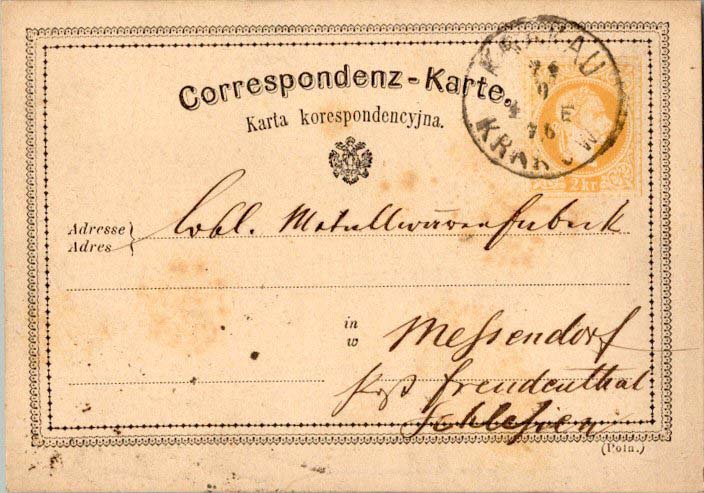 Correspondenz-Karte.
Karta korespondencyjna.
KRAKAU
9
76
KRAKÓW
2 kr
Adresse
Adres
Löbl. Metallwarenfabrik
in
w
Messendorf
post Freudenthal
Schlesien
(Poln.)